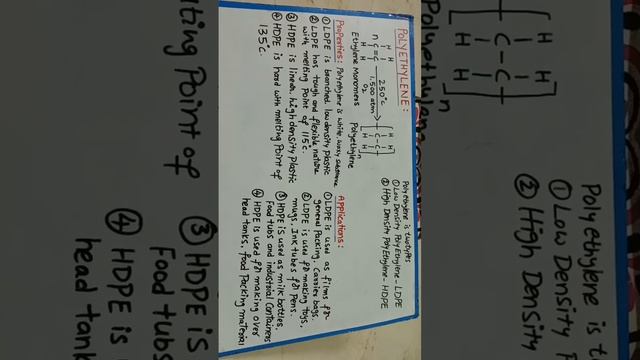 POLYETHYLENE:
Polyethylene is two types
① Low Density Poly Ethylene - LDPE
② High Density Poly Ethylene - HDPE
H H
n C=C 250°C 1,500 atm O₂ → [C-C]n
H H
Ethylene Monomers Polyethylene
Properties: Polyethylene is white, waxy substance
① LDPE is branched low density plastic
② LDPE has tough and flexible nature
with melting Point of 115°c.
③ HDPE is linear high density plastic
④ HDPE is hard with melting Point of
135°c.
Applications:
① LDPE is used as films for
general Packing, carrier bags.
② LDPE is used for making toys,
mugs, Ink tubes for Pens.
③ HDPE is used as milk bottles,
Food tubs and industrial containers
④ HDPE is used for making over
head tanks, food Packing material
H H
[C-C]
H H n
Polyethylene
Poly ethylene is
① Low Density
② High Density
lting Point of
③ HDPE is
Food tubs
④ HDPE is
head tank